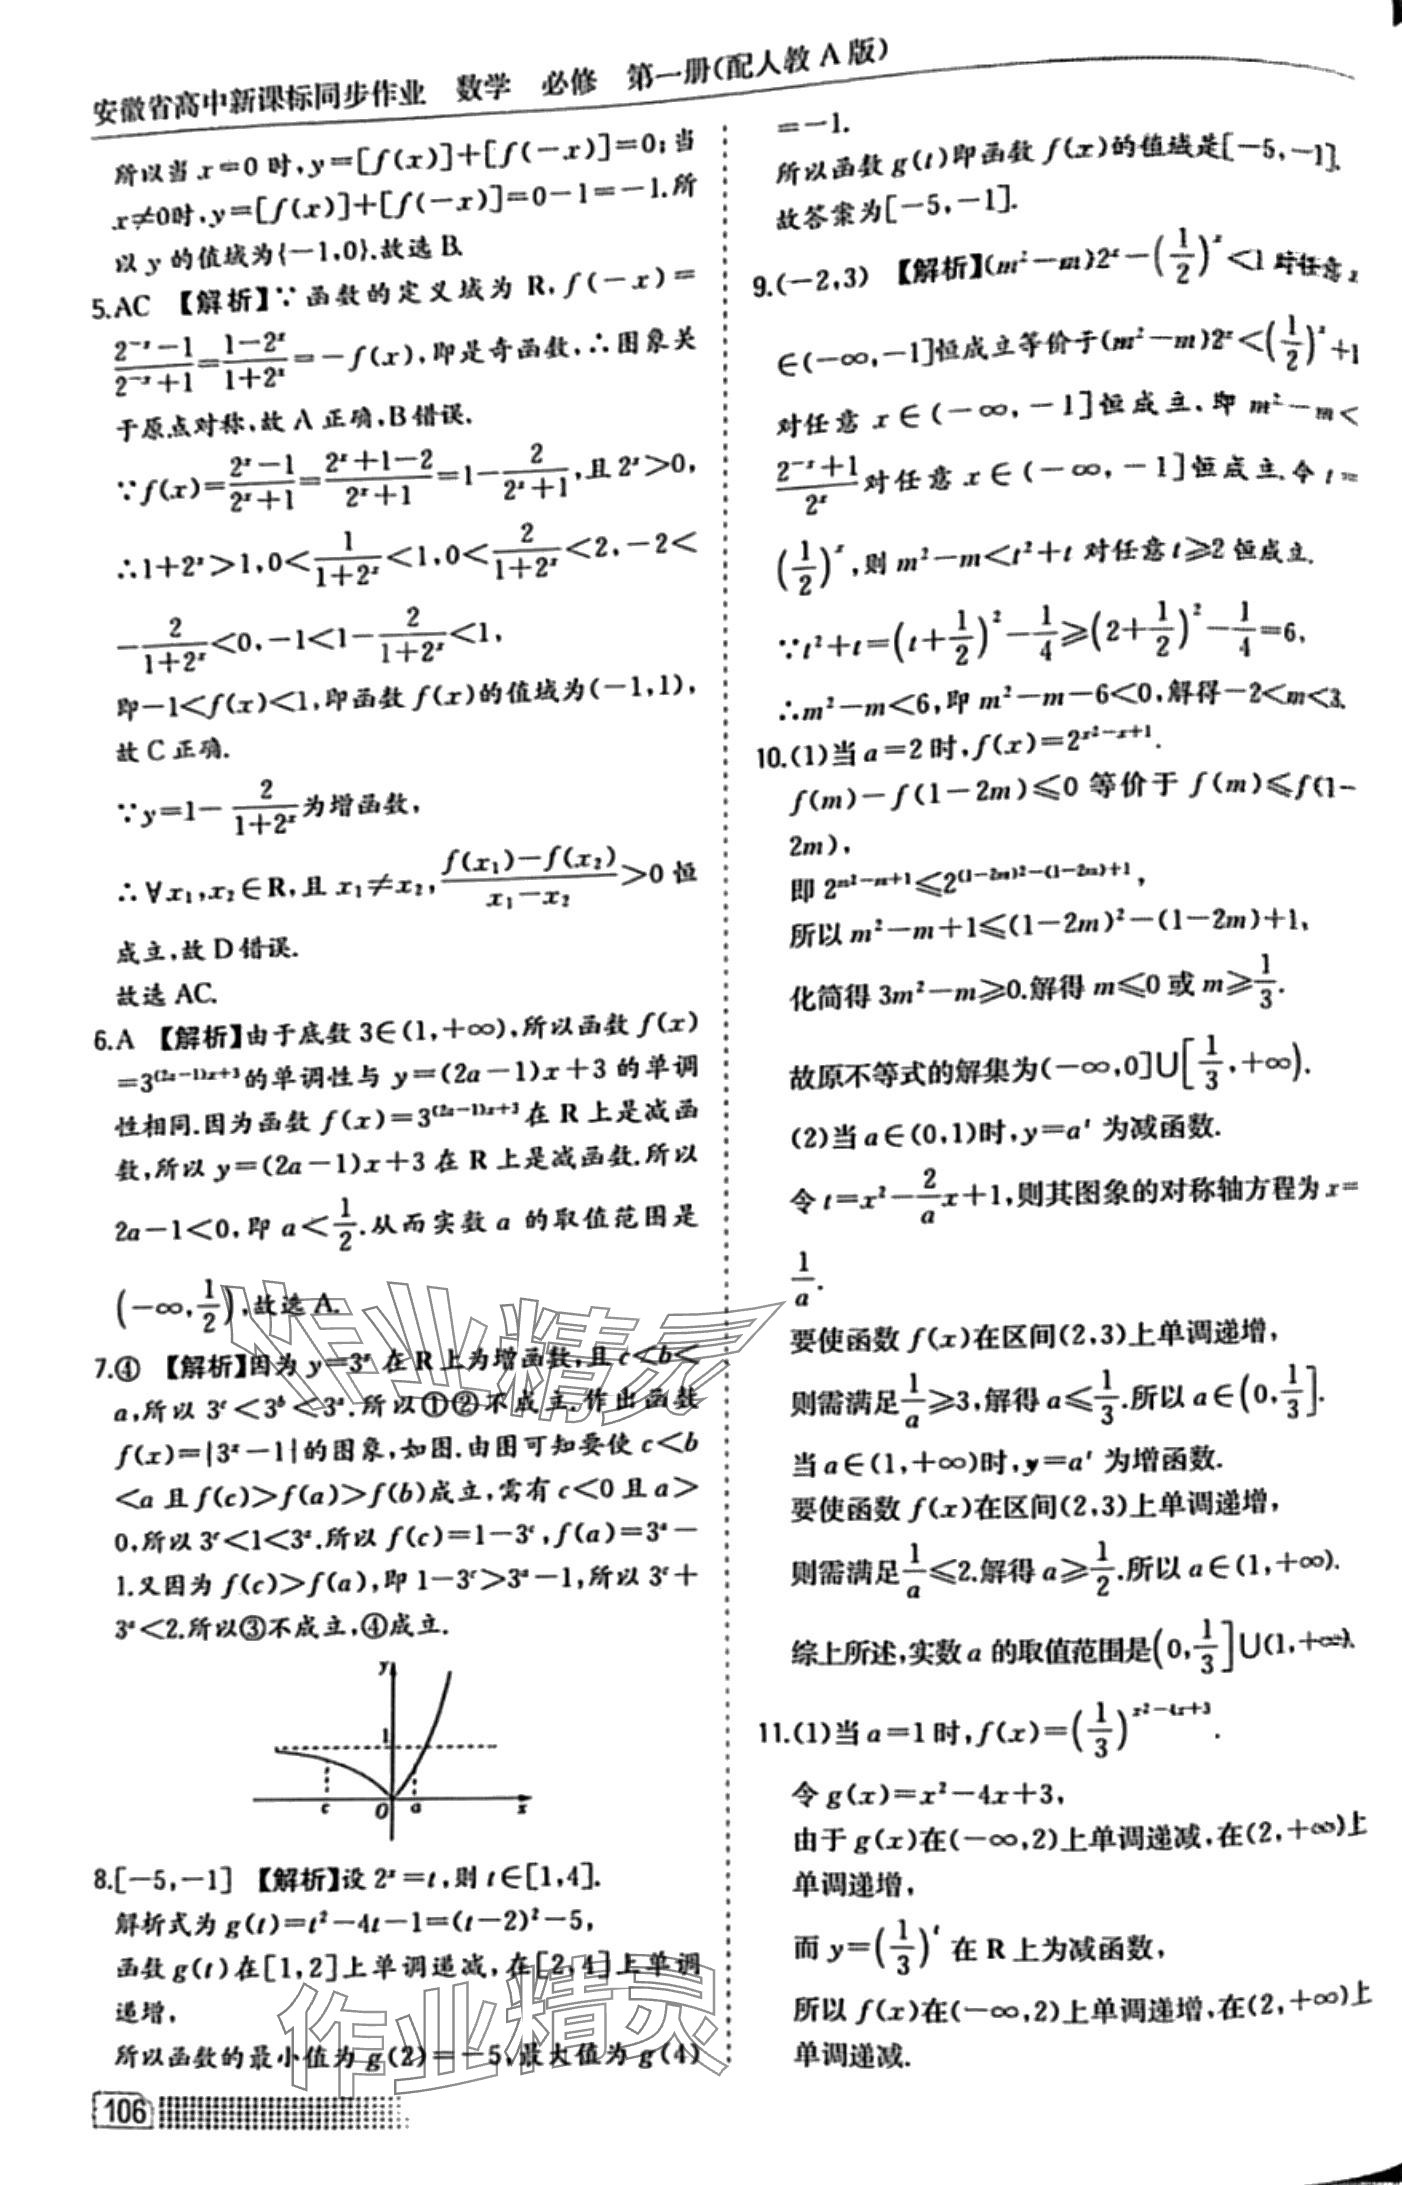 安徽省高中新课标同步作业 数学 必修 第一册(配人教 A 版)
所以当 x=0 时,y=[f(x)]+[f(-x)]=0;当
x≠0时,y=[f(x)]+[f(-x)]=0-1=-1.所
以 y 的值域为{-1,0}.故选 B.
5.AC 【解析】∵函数的定义域为 R,f(-x)=
\frac{2^{-x}-1}{2^{-x}+1}=\frac{1-2^x}{1+2^x}=-f(x),即是奇函数,∴图象关
于原点对称,故 A 正确,B 错误.
∵f(x)=\frac{2^x-1}{2^x+1}=\frac{2^x+1-2}{2^x+1}=1-\frac{2}{2^x+1},且 2^x>0,
∴1+2^x>1,0<\frac{1}{1+2^x}<1,0<\frac{2}{1+2^x}<2,-2<
-\frac{2}{1+2^x}<0,-1<1-\frac{2}{1+2^x}<1,
即-1<f(x)<1,即函数 f(x)的值域为(-1,1),
故 C 正确.
∵y=1-\frac{2}{1+2^x}为增函数,
∴∀x₁,x₂∈R,且 x₁≠x₂,\frac{f(x₁)-f(x₂)}{x₁-x₂}>0 恒
成立,故 D 错误.
故选 AC.
6.A 【解析】由于底数 3∈(1,+∞),所以函数 f(x)
=3^{(2a-1)x+3}的单调性与 y=(2a-1)x+3 的单调
性相同.因为函数 f(x)=3^{(2a-1)x+3}在 R 上是减函
数,所以 y=(2a-1)x+3 在 R 上是减函数.所以
2a-1<0,即 a<\frac{1}{2}.从而实数 a 的取值范围是
(-∞,\frac{1}{2}),故选 A.
7.④ 【解析】因为 y=3^x 在 R 上为增函数,且 c<b<
a,所以 3^c<3^b<3^a.所以①②不成立.作出函数
f(x)=|3^x-1|的图象,如图.由图可知要使 c<b
<a 且 f(c)>f(a)>f(b)成立,需有 c<0 且 a>
0,所以 3^c<1<3^a.所以 f(c)=1-3^c,f(a)=3^a-
1.又因为 f(c)>f(a),即 1-3^c>3^a-1,所以 3^c+
3^a<2.所以③不成立,④成立.
y
1
c O a x
8.[-5,-1] 【解析】设 2^x=t,则 t∈[1,4].
解析式为 g(t)=t²-4t-1=(t-2)²-5,
函数 g(t)在[1,2]上单调递减,在[2,4]上单调
递增,
所以函数的最小值为 g(2)=-5,最大值为 g(4)
106
=-1.
所以函数 g(t)即函数 f(x)的值域是[-5,-1].
故答案为[-5,-1].
9.(-2,3) 【解析】(m²-m)2^x-(\frac{1}{2})^x<1 对任意 x
∈(-∞,-1]恒成立等价于(m²-m)2^x<(\frac{1}{2})^x+1
对任意 x∈(-∞,-1]恒成立,即 m²-m<
\frac{2^{-x}+1}{2^x}对任意 x∈(-∞,-1]恒成立.令 t=
(\frac{1}{2})^x,则 m²-m<t²+t 对任意 t≥2 恒成立.
∵t²+t=(t+\frac{1}{2})²-\frac{1}{4}≥(2+\frac{1}{2})²-\frac{1}{4}=6,
∴m²-m<6,即 m²-m-6<0,解得-2<m<3.
10.(1)当 a=2 时,f(x)=2^{x²-x+1}.
f(m)-f(1-2m)≤0 等价于 f(m)≤f(1-
2m),
即 2^{m²-m+1}≤2^{(1-2m)²-(1-2m)+1},
所以 m²-m+1≤(1-2m)²-(1-2m)+1,
化简得 3m²-m≥0.解得 m≤0 或 m≥\frac{1}{3}.
故原不等式的解集为(-∞,0]∪[\frac{1}{3},+∞).
(2)当 a∈(0,1)时,y=a^t 为减函数.
令 t=x²-\frac{2}{a}x+1,则其图象的对称轴方程为 x=
\frac{1}{a}.
要使函数 f(x)在区间(2,3)上单调递增,
则需满足\frac{1}{a}≥3,解得 a≤\frac{1}{3}.所以 a∈(0,\frac{1}{3}].
当 a∈(1,+∞)时,y=a^t 为增函数.
要使函数 f(x)在区间(2,3)上单调递增,
则需满足\frac{1}{a}≤2.解得 a≥\frac{1}{2}.所以 a∈(1,+∞).
综上所述,实数 a 的取值范围是(0,\frac{1}{3}]∪(1,+∞).
11.(1)当 a=1 时,f(x)=(\frac{1}{3})^{x²-4x+3}.
令 g(x)=x²-4x+3,
由于 g(x)在(-∞,2)上单调递减,在(2,+∞)上
单调递增,
而 y=(\frac{1}{3})^t 在 R 上为减函数,
所以 f(x)在(-∞,2)上单调递增,在(2,+∞)上
单调递减.
作业精灵
作业精灵